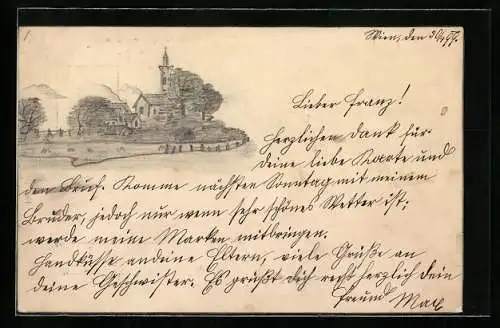 Wien, den 30/4 97.
Lieber Franz!
Herzlichen Dank für
deine liebe Karte und
den Brief. Komme nächsten Sonntag mit meinem
Bruder, jedoch nur wenn sehr schönes Wetter ist;
werde meine Marken mitbringen.
Handküsse an deine Eltern, viele Grüße an
deine Geschwister. Es grüßt dich recht herzlich dein
Freund Max